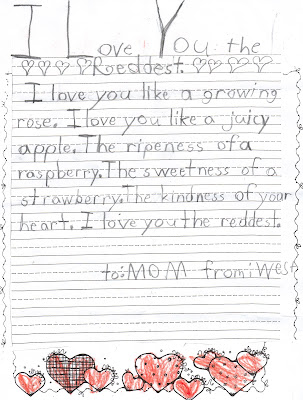 I Love You the
Reddest.
I love you like a growing
rose. I love you like a juicy
apple. The ripeness of a
raspberry. The sweetness of a
strawberry. The kindness of your
heart. I love you the reddest.
to: MOM from: West